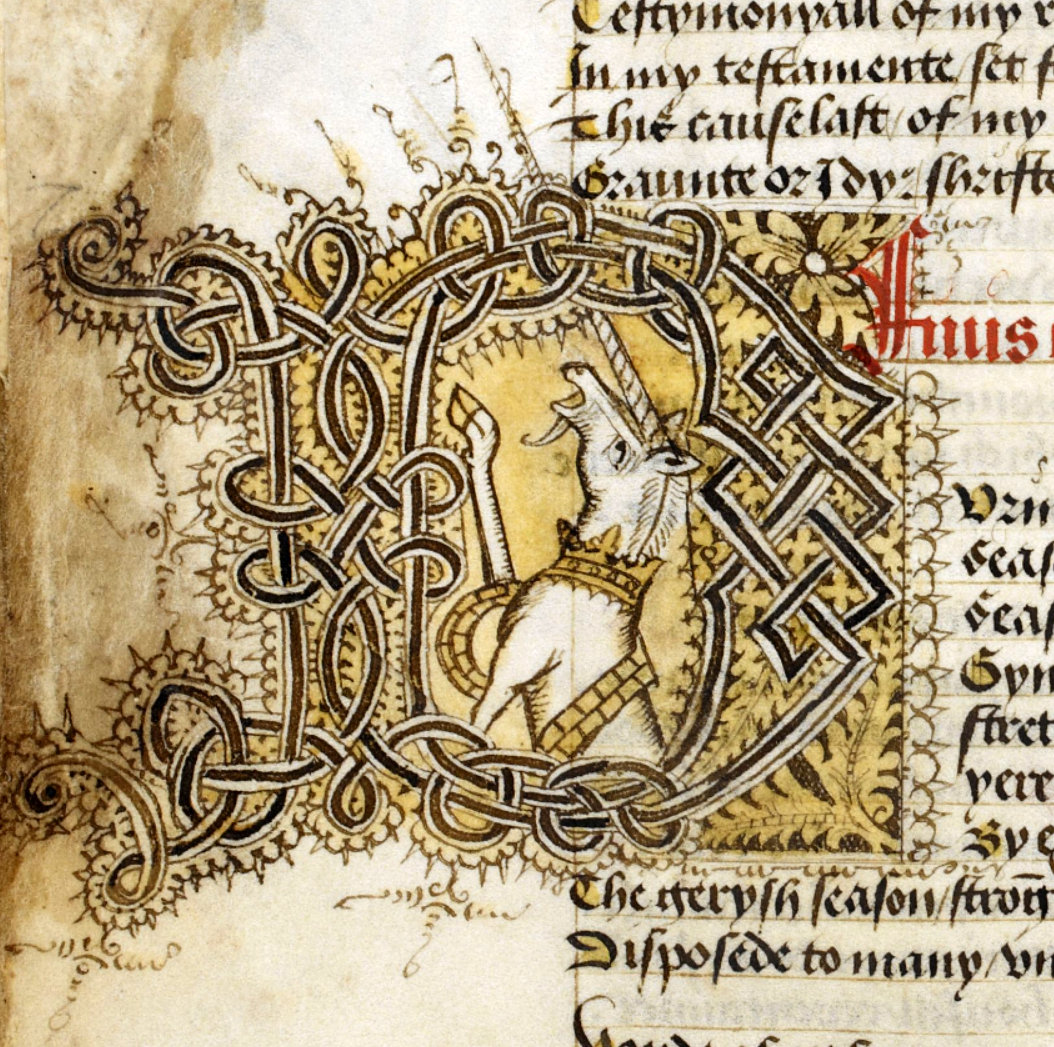 Testymonyall of my r
In my testamente set f
This cause last / of my
Graunte or I dy: shrifte
ffinis
D
vrin
Seas
Seas
Gyn
stret
yere
By e
The gerysh season / strong
Disposede to many / vn